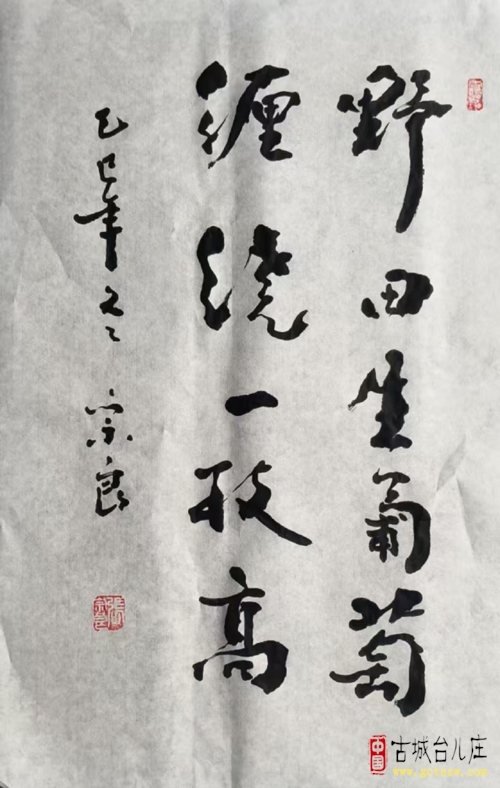 野田生葡萄
缠绕一枝高
乙巳年冬 宗良
中国
古城台儿庄